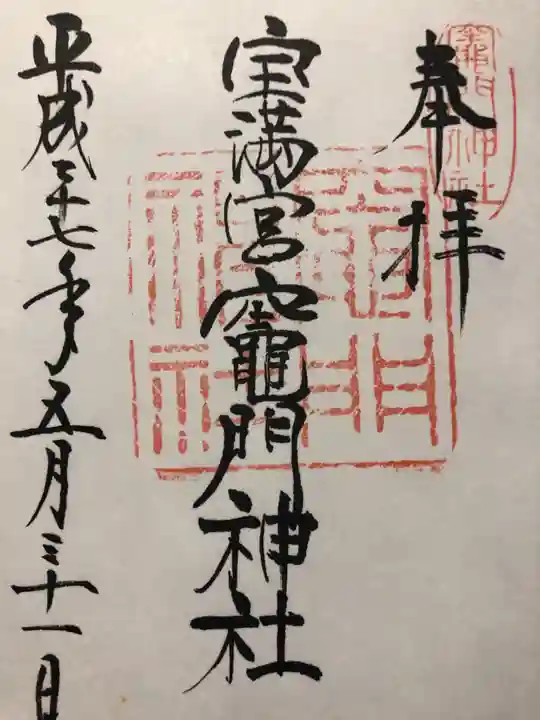 奉拝
宝満宮竈門神社
平成二十七年五月三十一日
竈門神社